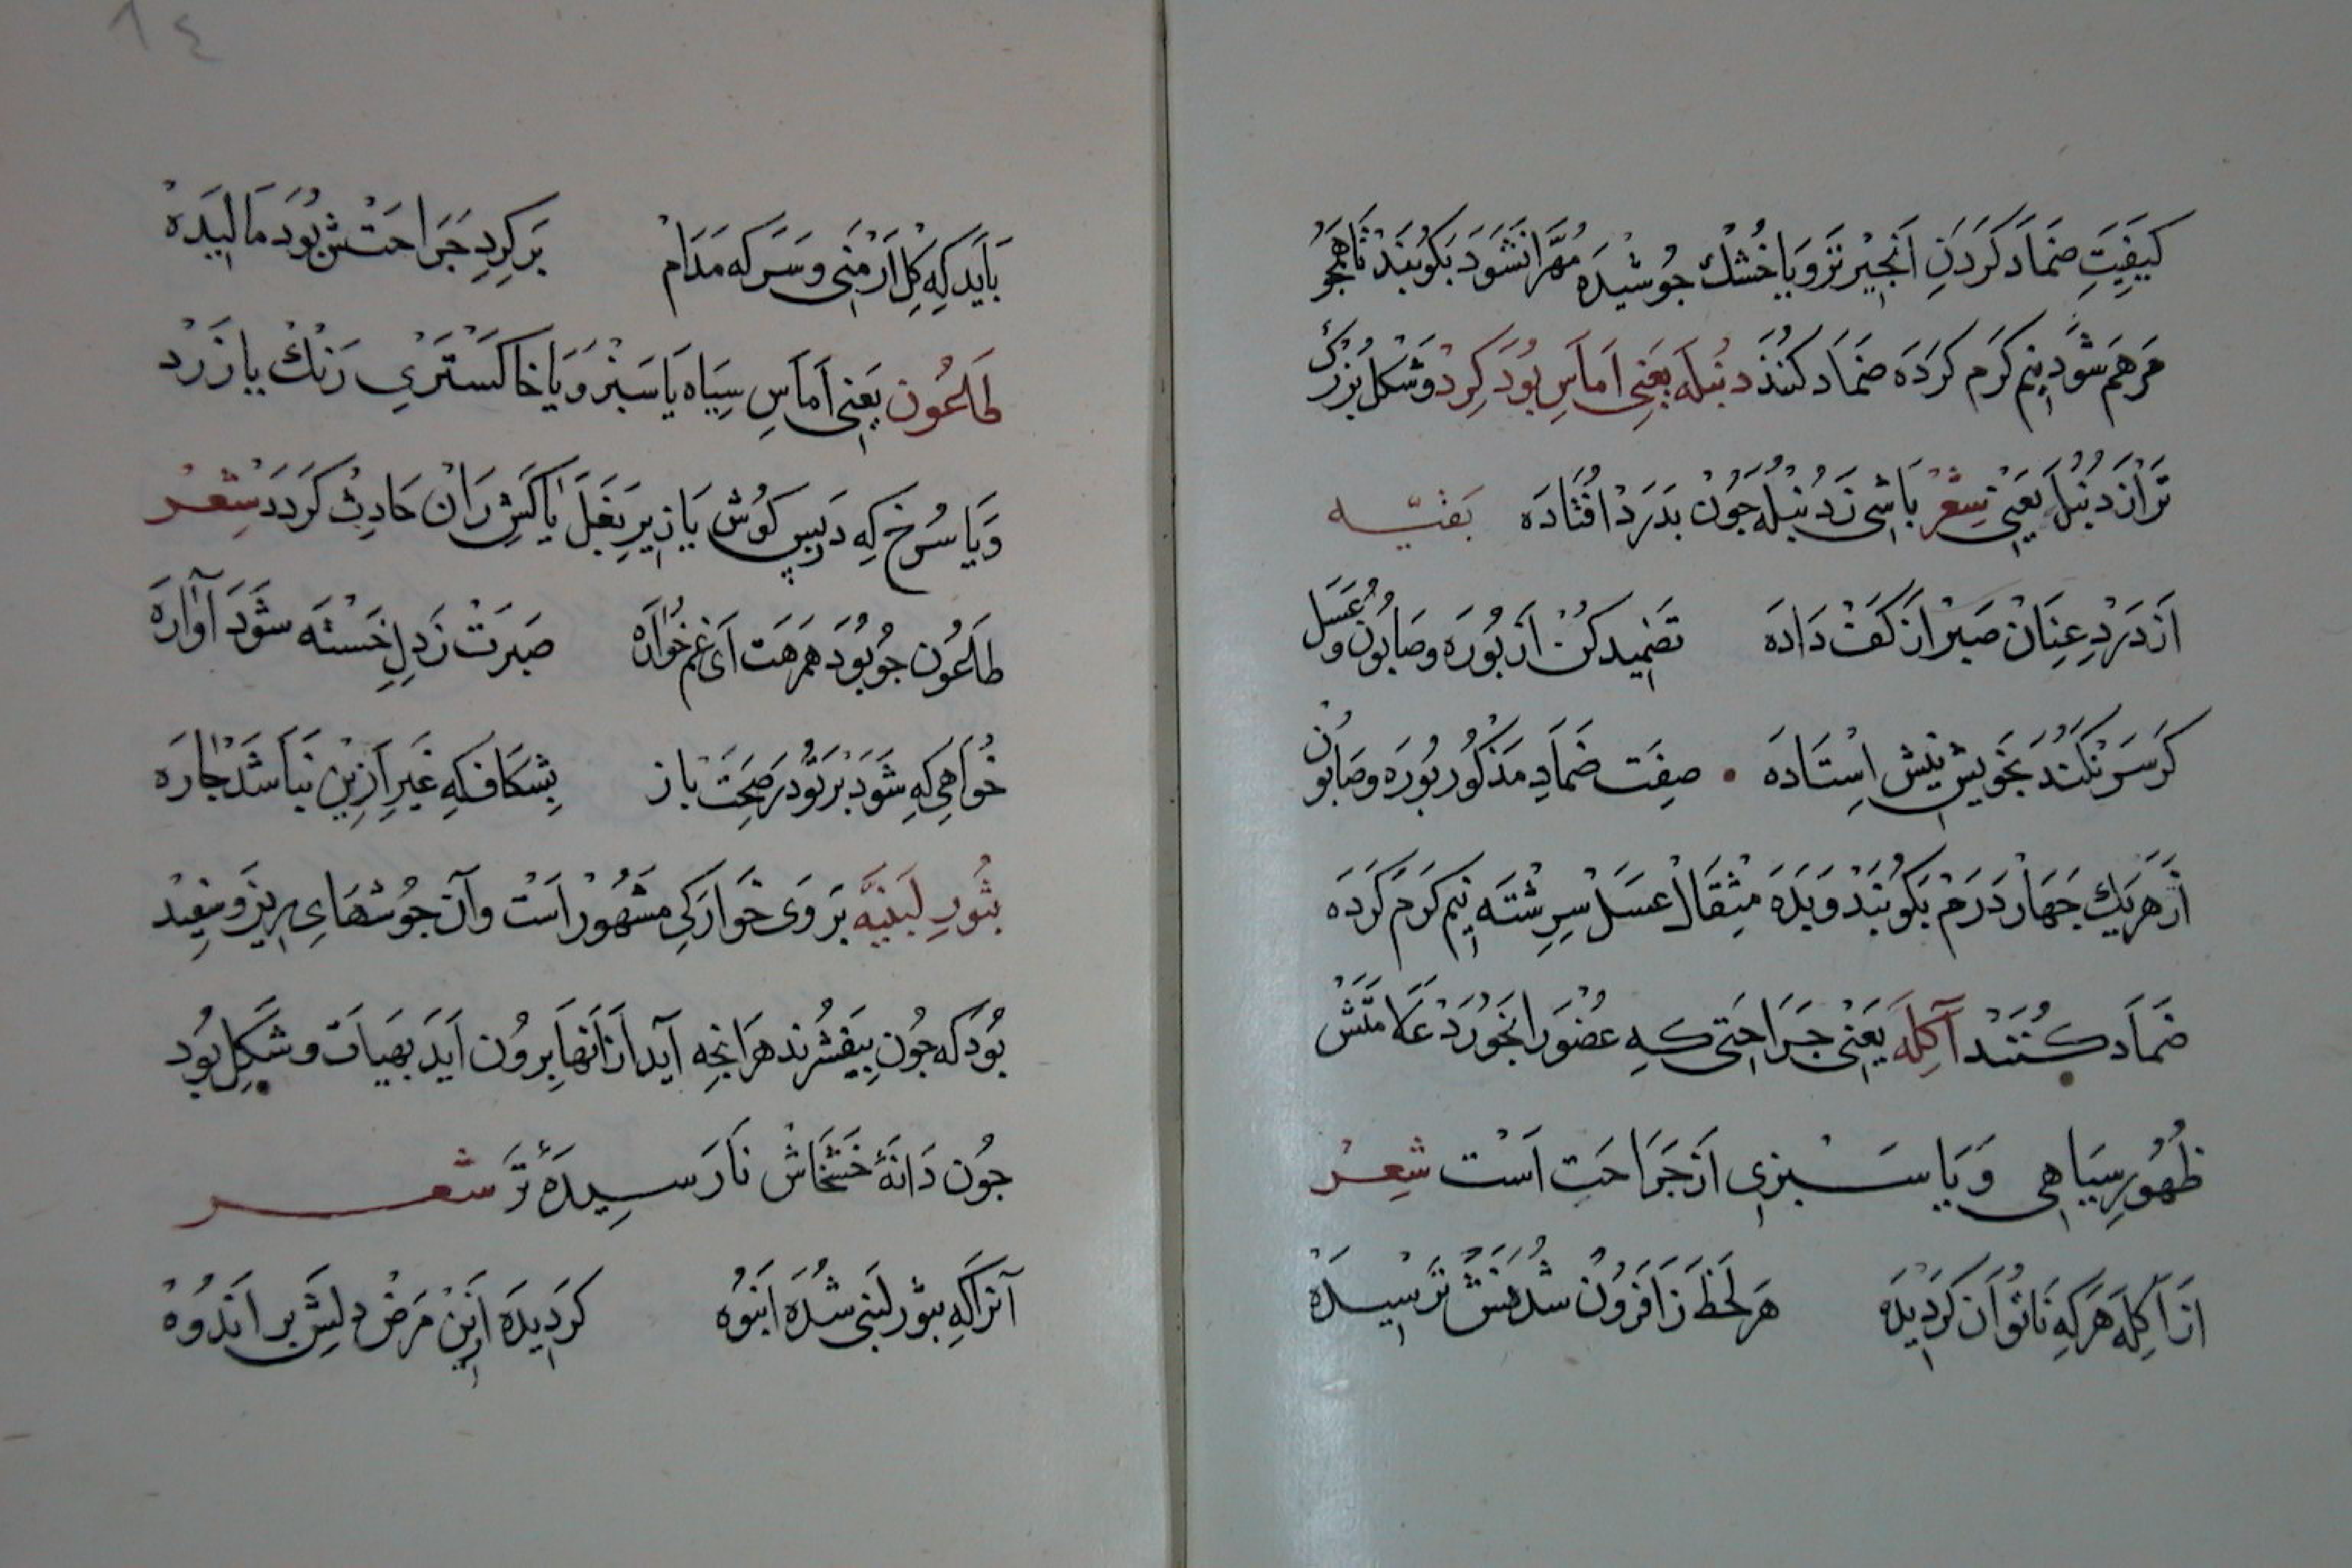 كَيفِيَتِ ضَمَاد كَرَدَنِ اَنجِيْر تَرْ وَيَا خُشْك جُوشيدَه مُهَرَّا نَشَوَدَ بَكُوبَنَدْ تَاهَمجُو
مَرهَم شَوَد نِيم كَرَم كَردَه ضَمَاد كُنَنذ دنبله يعَنِى اَمَاسِ بُودَ كِردْ وشَكل بُزُرْك
تَرْ اَز دُنبُل يَعَنِى شِعْرْ بَاشِى زَدُنبُلَه جُوْن بَدَرَدْ افُتَادَه بَقيّه
اَز دَرَدِ عِنَانْ صَبرْ اَز كَفَ دَادَه تضَمِيد كُنْ اَز بُورَه وصَابُون وعَسَل
كَر سَر نَكُنَد بَخَويِش نِيش اِسْتَادَه • صِفَت ضَمادِ مَذكُور بُورَه وصَابُون
اَز هَريَك جَهَارْ دَرَمْ بَكُوبَنَدْ وَبَدَه مِثقَالْ عسَلْ سِرِشْتَه نِيم كَرَم كَرَدَه
ضَمَاد كُنَنَدْ آكِلَه يَعَنِى جَرَاحَتِى كِه عضُورَا بَخُورَدْ عَلامَتَشْ
ظُهُورِ سِيَاهِى وَيَا سَبزِى اَز جَرَاحَتِ اَسْت شِعِرْ
اَز آكِلَه هَركِه نَاتُوَان كَردِيْدَه هَر لَحظَه زَافزُون شُدَنَشْ تَرسِيدَه
١٤
بَايَد كِه كِلِ اَرْمَنِى وسَركَه مَدَامْ بَر كِردِ جَرَاحَتْش بُوَد مَالِيدَهْ
طَاعُون يَعَنِى اَمَاسِ سِيَاه يَا سَبْز وَيَا خَاكَسْتَرِي رَنْكْ يا زَرْد
وَيَا سُرخ كِه دَرپِس كَوُش يَا زِيرِ بَغَلْ يَا كَشِ رَانْ حَادِثْ كَردَدَ شِعْر
طَاعُون جُو بُوَدَ هَمرَهَت اَى غَم خُوَارَه صَبرَتْ زَدِلِ خَسْتَه شَوَدَ آوَارَه
خُوَاهِى كِه شَوَدَ بَر تُو دَر صِحَتْ بَاز بِشِكَاف كِه غَيرِ اَزِيْن نَبَاشَدْ جَارَه
بُثُورِ لَبَنِيَّه بَر روَى خَوَارَكِى مَشَهُورْ اَسْت وآن جُوشْهَاىِ رِيز وَسفِيْد
بُوَد كه جُون بِيَفشُرند هَرَانجِه آيَد اَز اَنهَا بِرُون اَيَدَ بَهيَاتْ وشَكِل بُود
جُون دَانَهٔ خَشْخَاش نَارَسِيدَهٔ تَرْ شعر
آنرَا كِه بثُور لَبَنى شُدَه اَنبُوه كَردِيدَه اَزِينْ مَرَضْ دِلِش بر اَندُوهْ